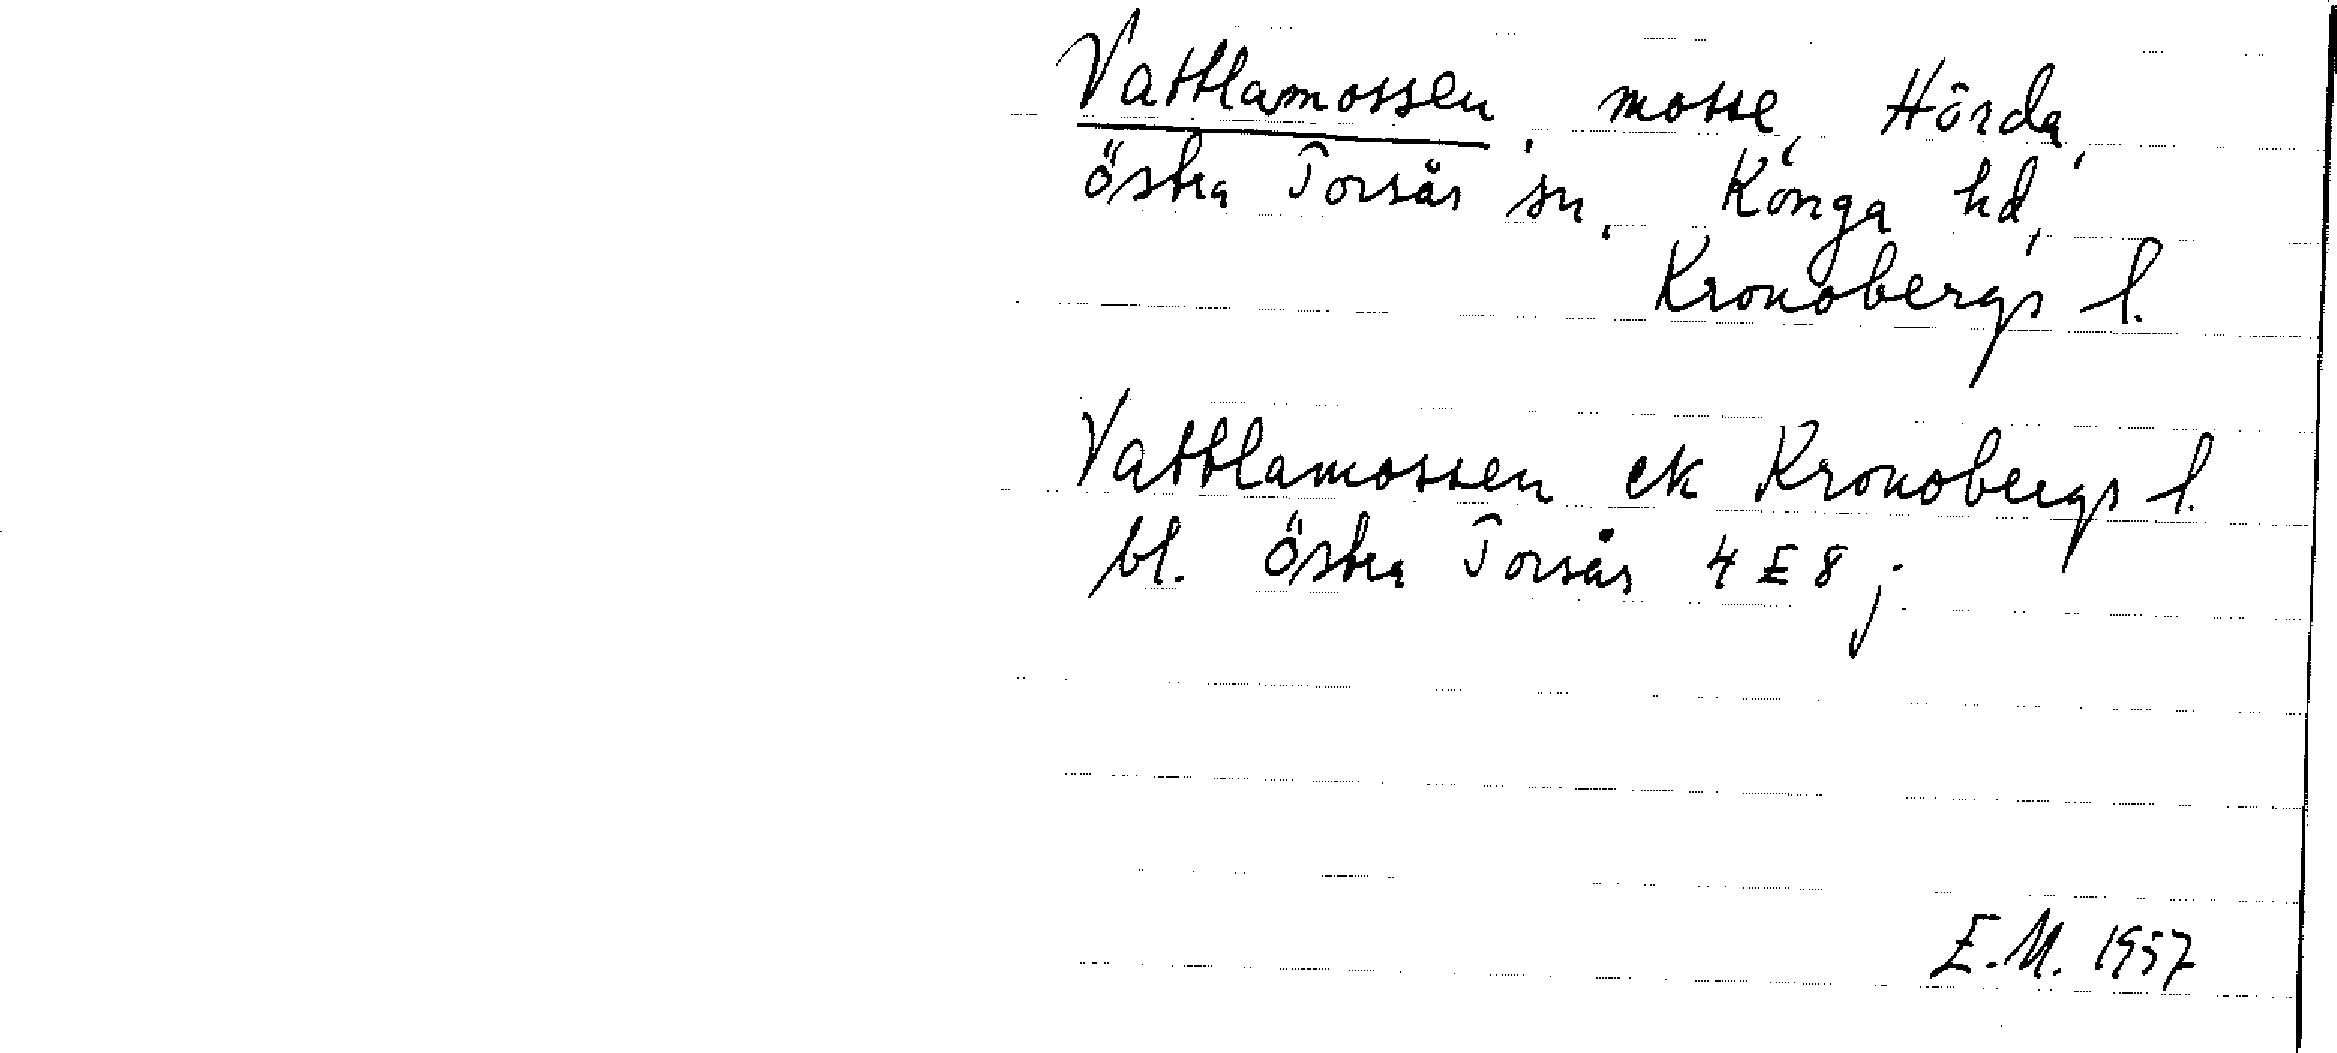 Vattlamossen, mosse, Hörda,
östra Torsås sn, Konga hd,
Kronobergs l.
Vattlamossen ek Kronobergs l.
bl. Östra Torsås 4 E 8 j
E.M. 1957